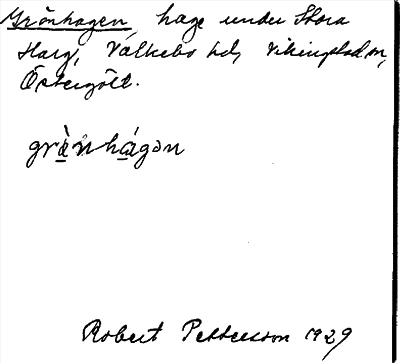 Grönhagen, hage under Stora
Harg, Valkebo hd, Vikingstad sn,
Östergötl.
grὰnhágən
Robert Pettersson 1929